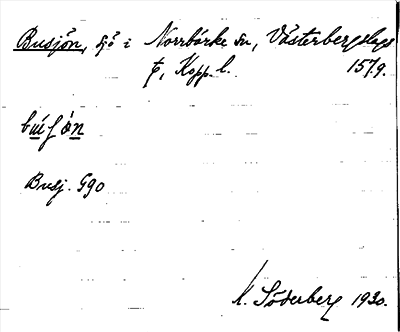 Busjön, sjö i Norrbärke sn, Västerbergslags
f, Kopp. l. 157.9.
Busj. G90
K. Söderberg 1930.